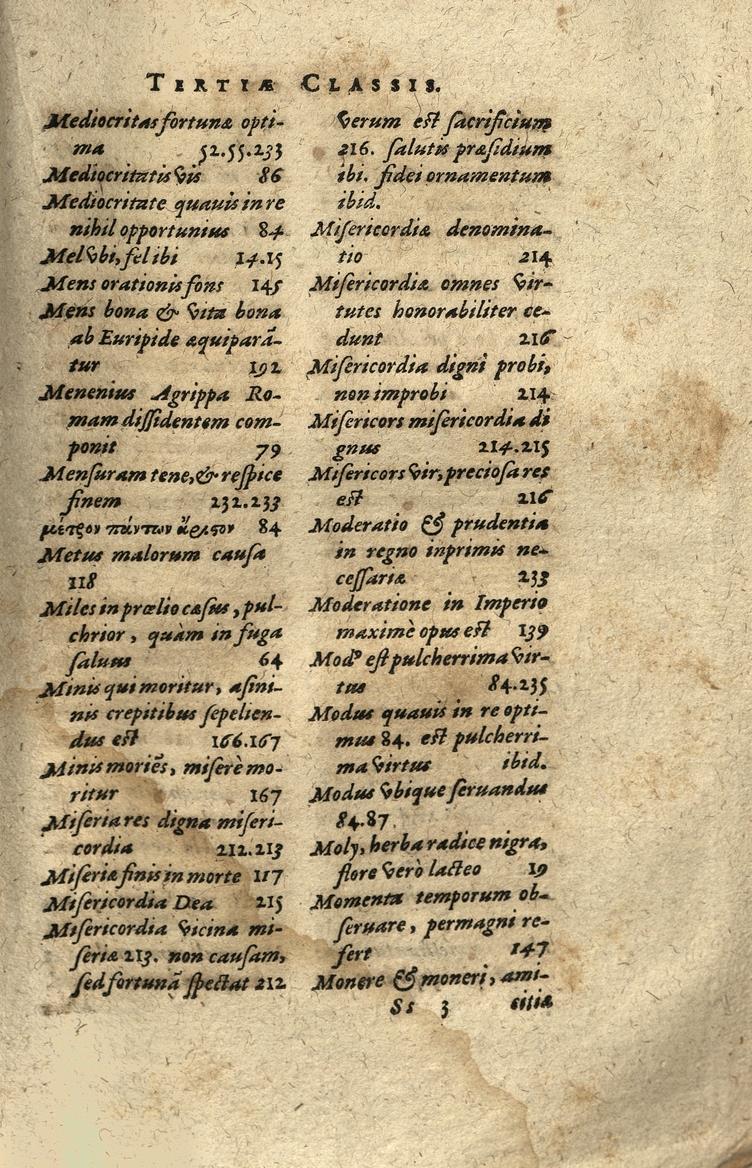 TERTIÆ CLASSIS.
Mediocritas fortunæ opti-
ma 52.55.233
Mediocritatis vis 86
Mediocritate quauis in re
nihil opportunius 84
Mel vbi, fel ibi 14.15
Mens orationis fons 145
Mens bona & vita bona
ab Euripide æquiparã-
tur 192
Menenius Agrippa Ro-
mam dißidentem com-
ponit 79
Mensuram tene, & respice
finem 232.233
μέτρον πάντων ἄριστον 84
Metus malorum causa
118
Miles in prœlio cæsus, pul-
chrior, quàm in fuga
saluus 64
Minis qui moritur, asini-
nis crepitibus sepelien-
dus est 166.167
Minis moriẽs, miserè mo-
ritur 167
Miseria res digna miseri-
cordia 212.213
Miseriæ finis in morte 117
Misericordia Dea 215
Misericordia vicina mi-
seriæ 213. non causam,
sed fortunã spectat 212
verum est sacrificium
216. salutis præsidium
ibi. fidei ornamentum
ibid.
Misericordiæ denomina-
tio 214
Misericordiæ omnes vir-
tutes honorabiliter ce-
dunt 216
Misericordia digni probi,
non improbi 214
Misericors misericordia di
gnus 214.215
Misericors vir, preciosa res
est 216
Moderatio & prudentia
in regno inprimis ne-
cessariæ 233
Moderatione in Imperio
maximè opus est 139
Modꝰ est pulcherrima vir-
tus 84.235
Modus quauis in re opti-
mus 84. est pulcherri-
ma virtus ibid.
Modus vbique seruandus
84.87
Moly, herba radice nigra,
flore verò lacteo 19
Momenta temporum ob-
seruare, permagni re-
fert 147
Monere & moneri, ami-
Ss 3 citiæ